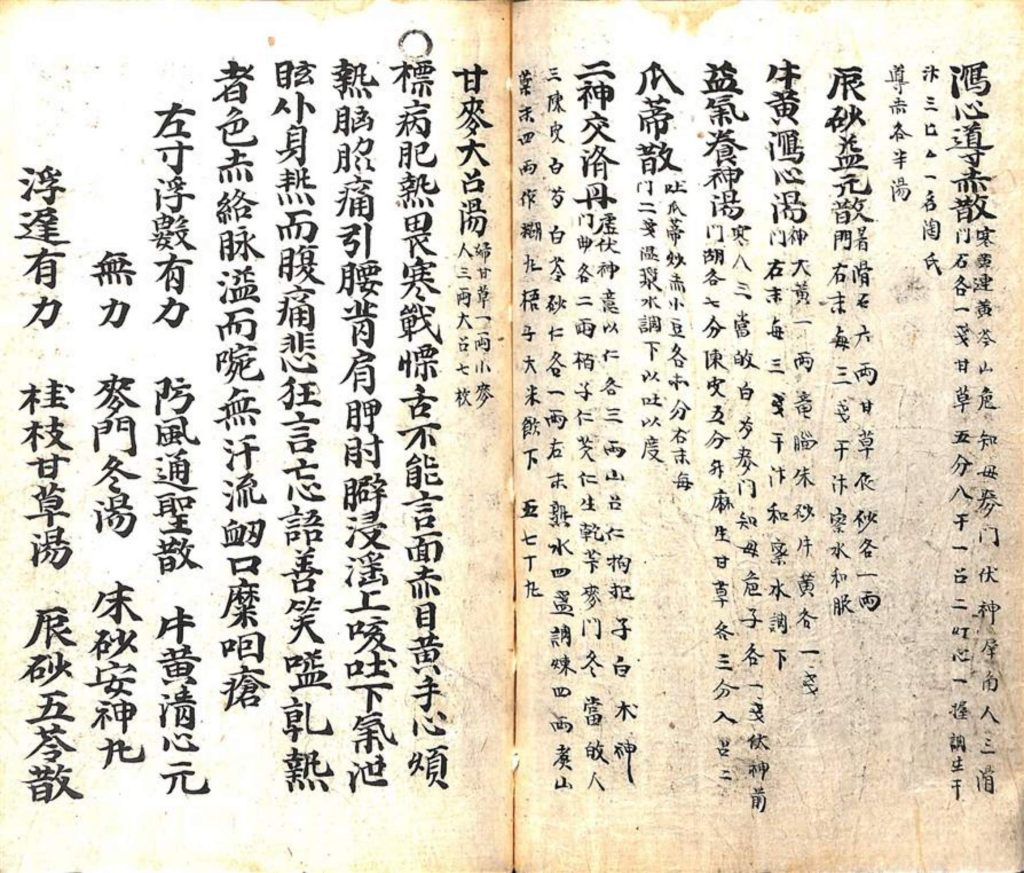 瀉心導赤散
寒黄連黄芩山危知母麥门伏神犀角人三滑
门石各一戔甘草五分八干一召二灯心一握調生干
汴三匕
一名陶氏
導赤各半湯
辰砂益元散
暑滑石六両甘草辰砂各一両
門右末每三戔干汴宻水和服
牛黄瀉心湯
神大黄一両竜腦朱砂牛黄各一戔
门右末每三戔干汴和宻水調下
益氣養神湯
寒人三當皈白芍麥门知母危子各一戔伏神前
门胡各七分陳皮五分升麻生甘草各三分入召二
瓜蒂散
吐瓜蒂炒赤小豆各木分右末每
门二戔温漿水調下以吐以度
二神交济丹
虚伏神薏以仁各三両山召仁拘杞子白木神
门曲各二両栢子仁芡仁生乾芐麥门冬當皈人
三陳皮白芍白苓砂仁各一両右末熟水四盞調煉四両炙山
藥末四両作糊丸梧子大米飲下五七十丸
甘麥大召湯
婦甘草一両小麥
人三両大召七枚
標病肥熱畏寒戰慄舌不能言面赤目黄手心煩
熱胸脇痛引腰背肩胛肘臂浸滛上咳吐下氣泄
眩仆身熱而腹痛悲狂言忘語善笑嗌乹熱
者色赤絡脉溢而啘無汗流衂口糜呬瘡
左寸浮數有力 防風通聖散 牛黄淸心元
無力 麥門冬湯 朱砂安神丸
浮遲有力 桂枝甘草湯 辰砂五苓散